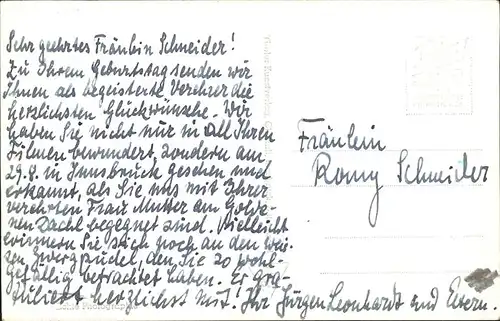 Sehr geehrtes Fräulein Schneider!
Zu Ihrem Geburtstag senden wir
Ihnen als begeisterte Verehrer die
herzlichsten Glückwünsche. Wir
haben Sie nicht nur in all Ihren
Filmen bewundert, sondern am
29.8. in Innsbruck gesehen und
erkannt, als Sie uns mit Ihrer
verehrten Frau Mutter am Golde-
nen Dachl begegnet sind. Vielleicht
erinnern Sie sich noch an den weis-
sen Zwergpudel, den Sie so wohl-
gefällig betrachtet haben. Er gra-
tuliert herzlichst mit! Ihr Jürgen Leonhardt und Eltern.
Fräulein
Romy Schneider